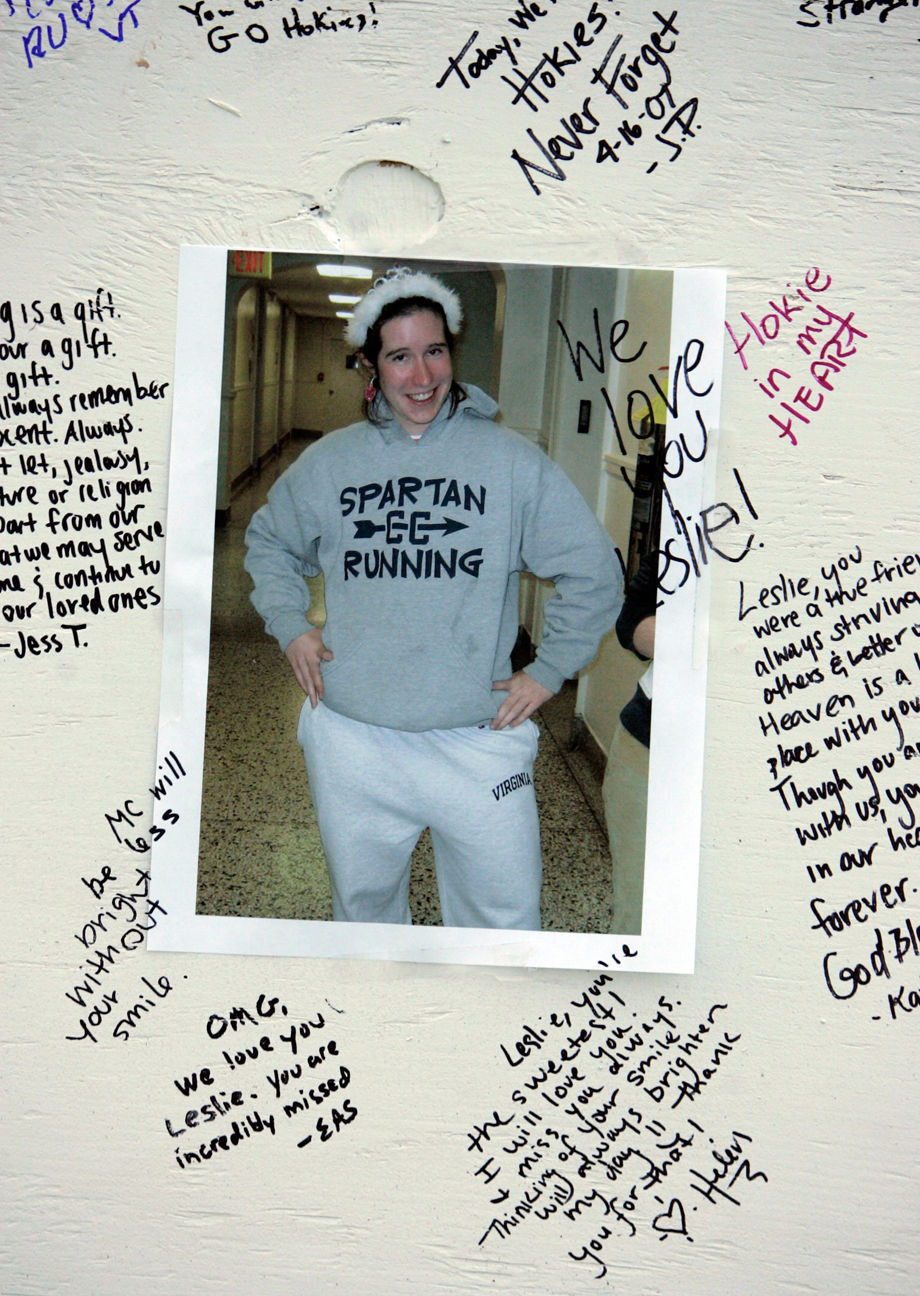 RU ♡
VT
GO Hokies!
Today, We
Hokies!
Never Forget
4-16-07
-J.P.
EXIT
We
love
you
Leslie!
Hokie
in my
HEART
g is a gift.
our a gift.
gift.
always remember
cent. Always.
t let, jealousy,
ture or religion
part from our
at we may serve
me & continue to
our loved ones
-Jess T.
SPARTAN
CC
RUNNING
VIRGINIA
Leslie, you
were a true frie
always striving
others & better
Heaven is a
place with you
Though you a
with us, yo
in our hea
forever.
God Bl
-Ka
MC will
be less
bright
without
your
smile.
OMG,
we love you
Leslie. You are
incredibly missed
-EAS
Leslie, you're
the sweetest!
I will love you
& miss you always.
Thinking of your smile
will always brighten
my day!! Thank
you for that!
♡ Helen